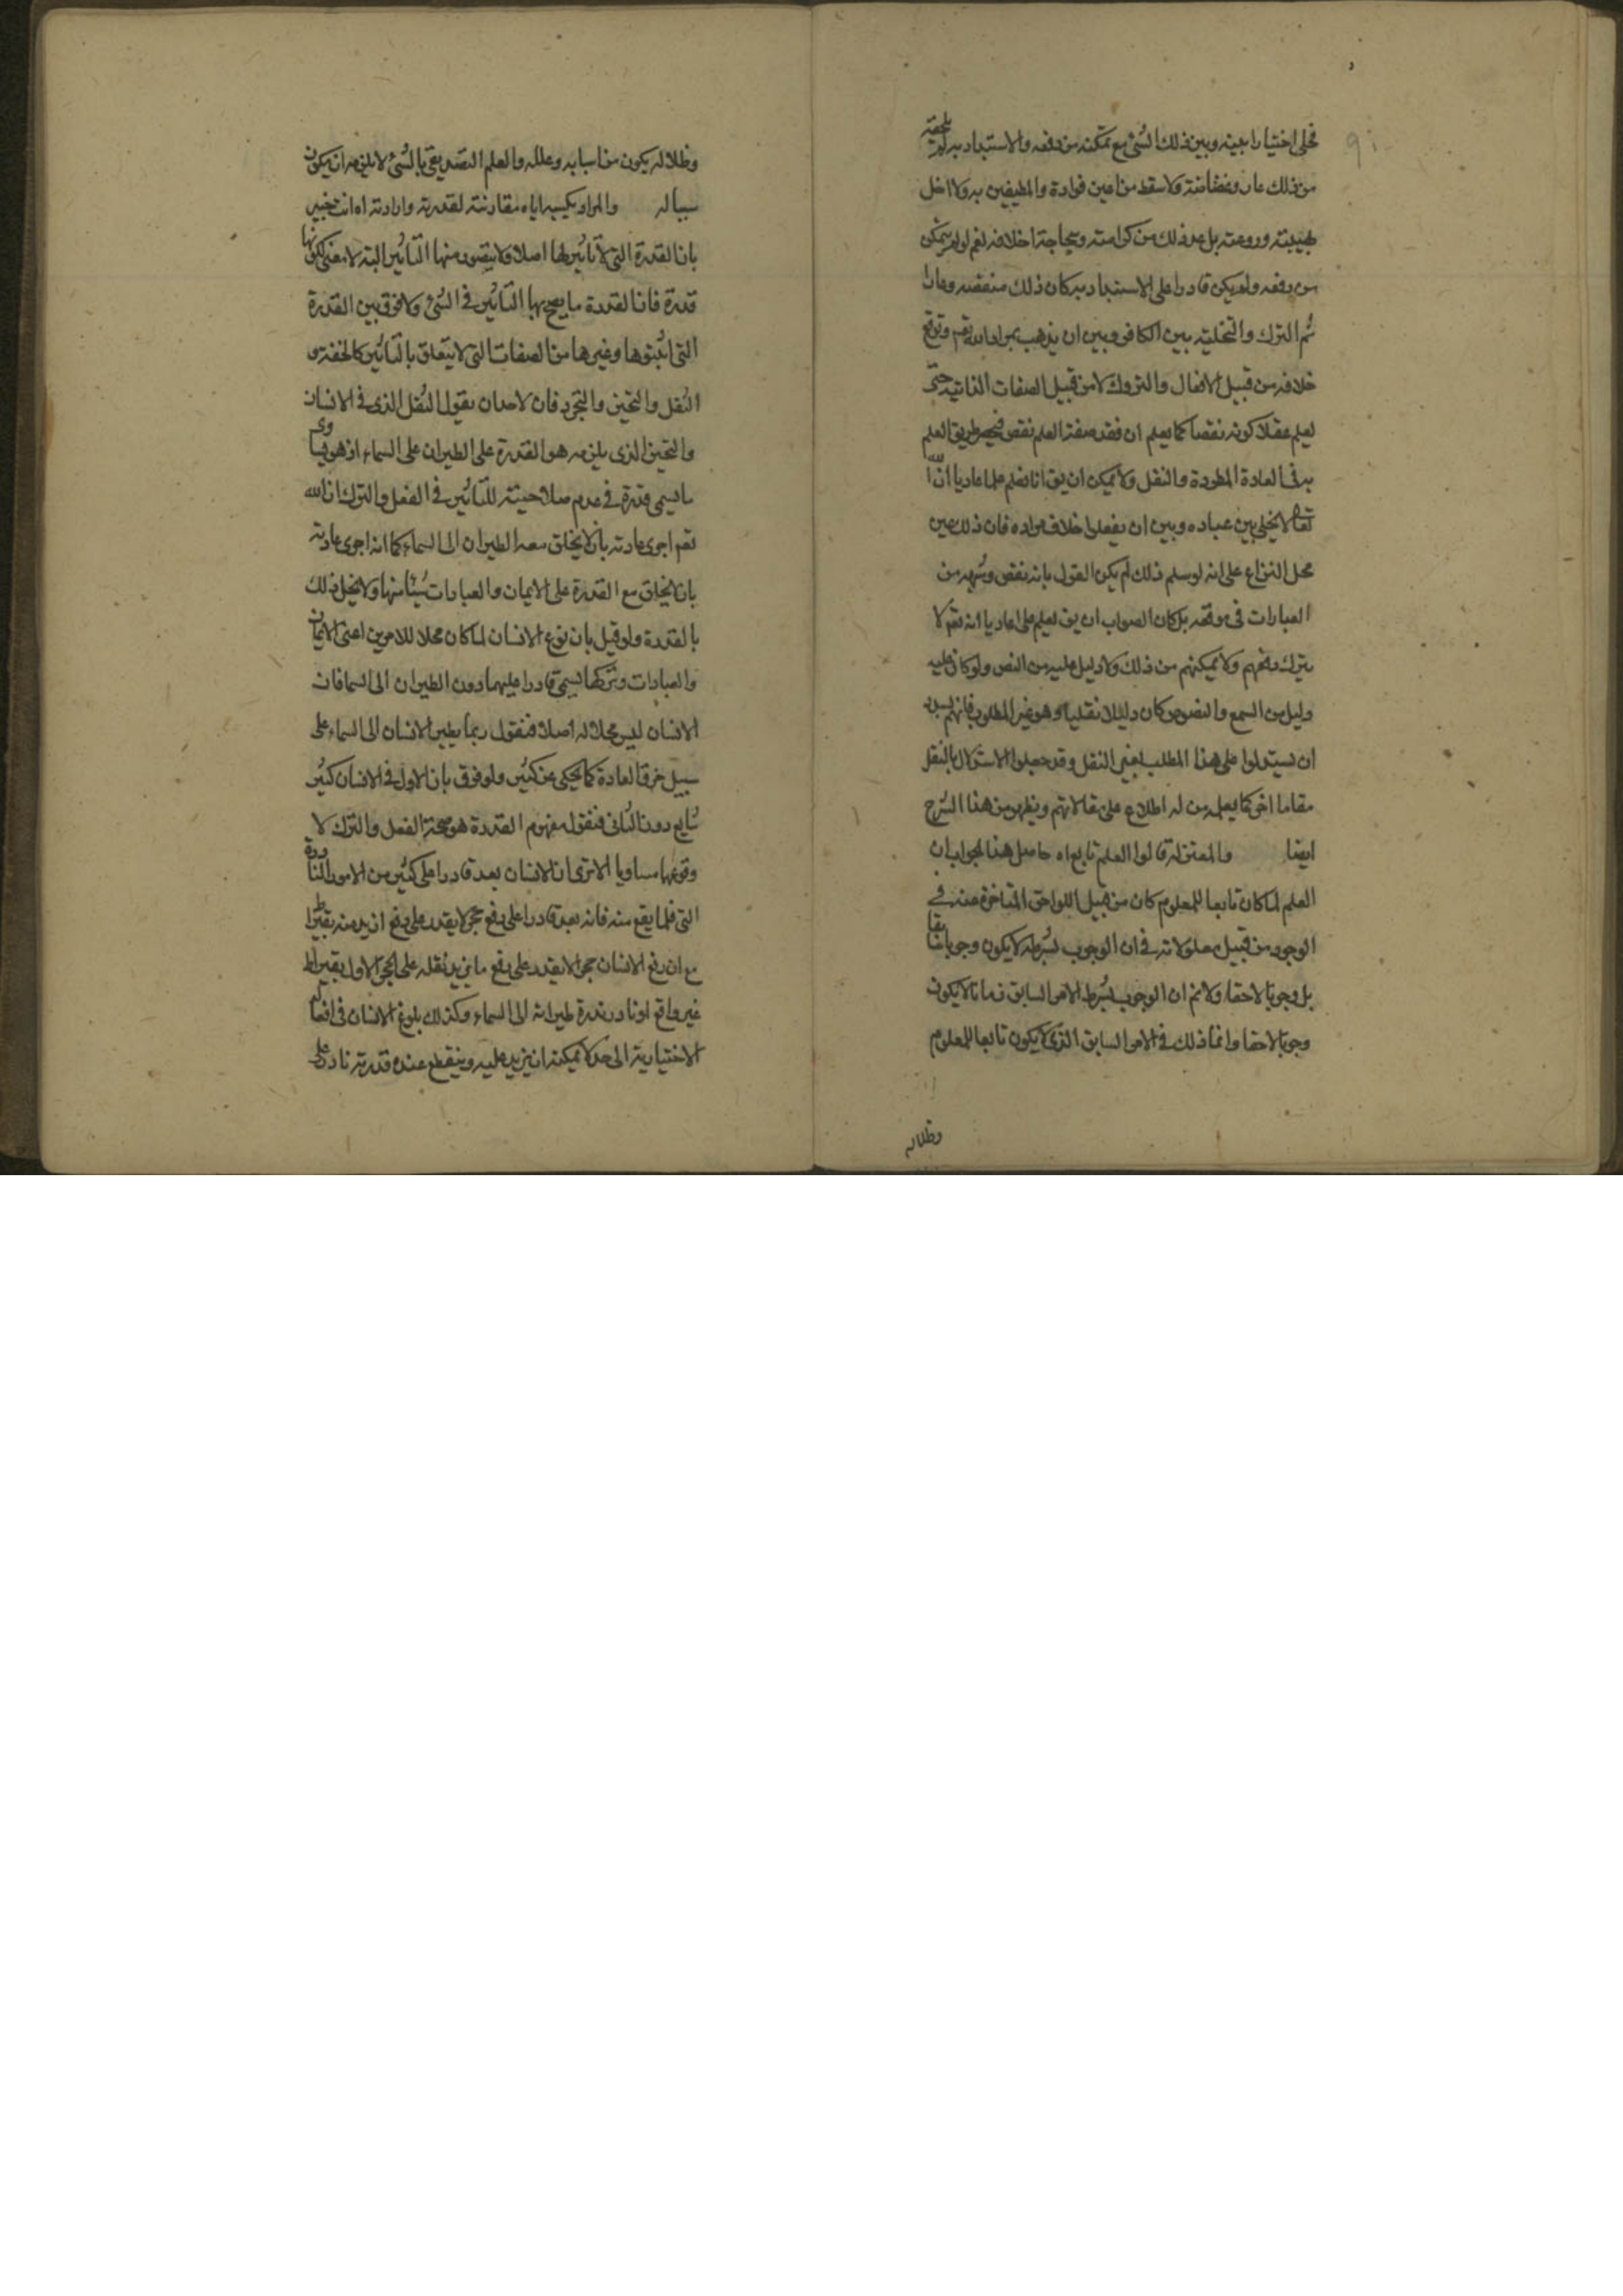 فخلى اختيارا بينه وبين ذلك الشئ مع تمكنه من دفعه والاستبداد به لم يلحقه
من ذلك عار وغضاضة ولا سقط من اعين قواده والمطيفين به ولا اخل
بهيبته وروعته بل عد ذلك من كرامته اخلاقه نعم لو لم يتمكن
من دفعه ولم يكن قادرا على الاستبداد به كان ذلك منقصة وعارا
ثم الترك والتخلية بين الكافر وبين ان يذهب بمراد الله تعم وتوقع
خلافه من قبيل الافعال والتروك لا من قبيل الصفات الذاتية حتى
يعلم عقلا كونه نقصا كما يعلم ان فقد صفة العلم نقص فينحصر طريق العلم
به فى العادة المطردة والنقل ولا يمكن ان يق انا نعلم علما عاديا ان الله
تعالى لا يخلى بين عباده وبين ان يفعلوا خلاف مراده فان ذلك عين
محل النزاع على انه لو سلم ذلك لم يكن القول بانه نقص وشبهه من
العبارات فى موقعه بل كان الصواب ان يق نعلم علما عاديا انه تعم لا
يترك منعهم ولا يمكنهم من ذلك ولا دليل عليه من النص ولو كان عليه
دليل من السمع والنصوص كان دليلا نقليا وهو غير المطلوب فانهم بصدد
ان يستدلوا على هذا المطلب بغير النقل وقد جعلوا الاستدلال بالنقل
مقاما اخر كما يعلمه من له اطلاع على مقالاتهم ويظهر من هذا الشرح
ايضا والمعتزلة قالوا العلم تابع اه حاصل هذا الجواب ان
العلم لما كان تابعا للمعلوم كان من قبيل اللواحق المتاخرة عنه فى
الوجود من قبيل معلولاته فى ان الوجوب بشرطه لا يكون وجوبا سابقا
بل وجوبا لاحقا ولا نم ان الوجوب بشرط الامر السابق زمانا لا يكون
وجوبا لاحقا وانما ذلك فى الامر السابق الذى لا يكون تابعا للمعلوم
وظلاله
وظلا له يكون من اسبابه وعلله والعلم التصديقى بالشئ لا يلزمه ان يكون
سببا له والمراد بكسبه اياه مقارنته لقدرته وارادته اه انت خبير
بان القدرة التى لا تاثير لها اصلا ولا يتصور منها التاثير البتة لا معنى لكونها
قدرة فان القدرة ما يصح بها التاثير فى الشئ ولا فرق بين القدرة
التى اثبتوها وغيرها من الصفات التى لا يتعلق بالتاثير كالخفة و
الثقل والتحيز والتجرد فان لاحد ان يقول الثقل الذى فى الانسان
والتحيز الذى يلزمه هو القدرة على الطيران على السماء اذ هو يساوى
ما يسمى قدرة فى عدم صلاحيته للتاثير فى الفعل والترك ان الله
تعم اجرى عادته بان لا يخلق معه الطيران الى السماء كما انه اجرى عادته
بان لا يخلق مع القدرة على الايمان والعبادات شيئا منها ولا يخل ذلك
بالقدرة ولو قيل بان نوع الانسان لما كان محلا للامرين اعنى الايمان
والعبادات وتركها يسمى قادرا عليهما دون الطيران الى السما فان
الانسان ليس محلا له اصلا فنقول ربما يطير الانسان الى السماء على
سبيل خرق العادة كما يحكى عن كثير ولو فرق بان الاول فى الانسان كثير
شايع دون الثانى فنقول مفهوم القدرة هو صحة الفعل والترك لا
وقوعهما مساويا الا ترى ان الانسان يعد قادرا على كثير من الامور النادرة
التى قلما يقع منه فانه يعد قادرا على رفع حجر لا يقدر على رفع ازيد منه بقيراط
مع ان رفع الانسان حجرا لا يقدر على رفع ما يزيد ثقله على الحجر الاول بقيراط
غير واقع او نادر ندرة طيرانه الى السماء وكذلك بلوغ الانسان فى افعاله
الاختيارية الى حد لا يمكنه ان يزيد عليه وينقطع عنده قدرته نادر على